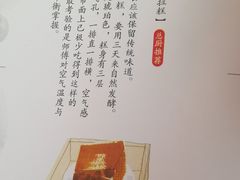 拉糕
总厨推荐
应该保留传统味道。
糕，要用三天来自然发酵。
琥珀色，糕身有三层
孔，一排直一排横，空气感
市面上已极少吃得到这
最考验的是师傅对空气温度与
衡掌握。